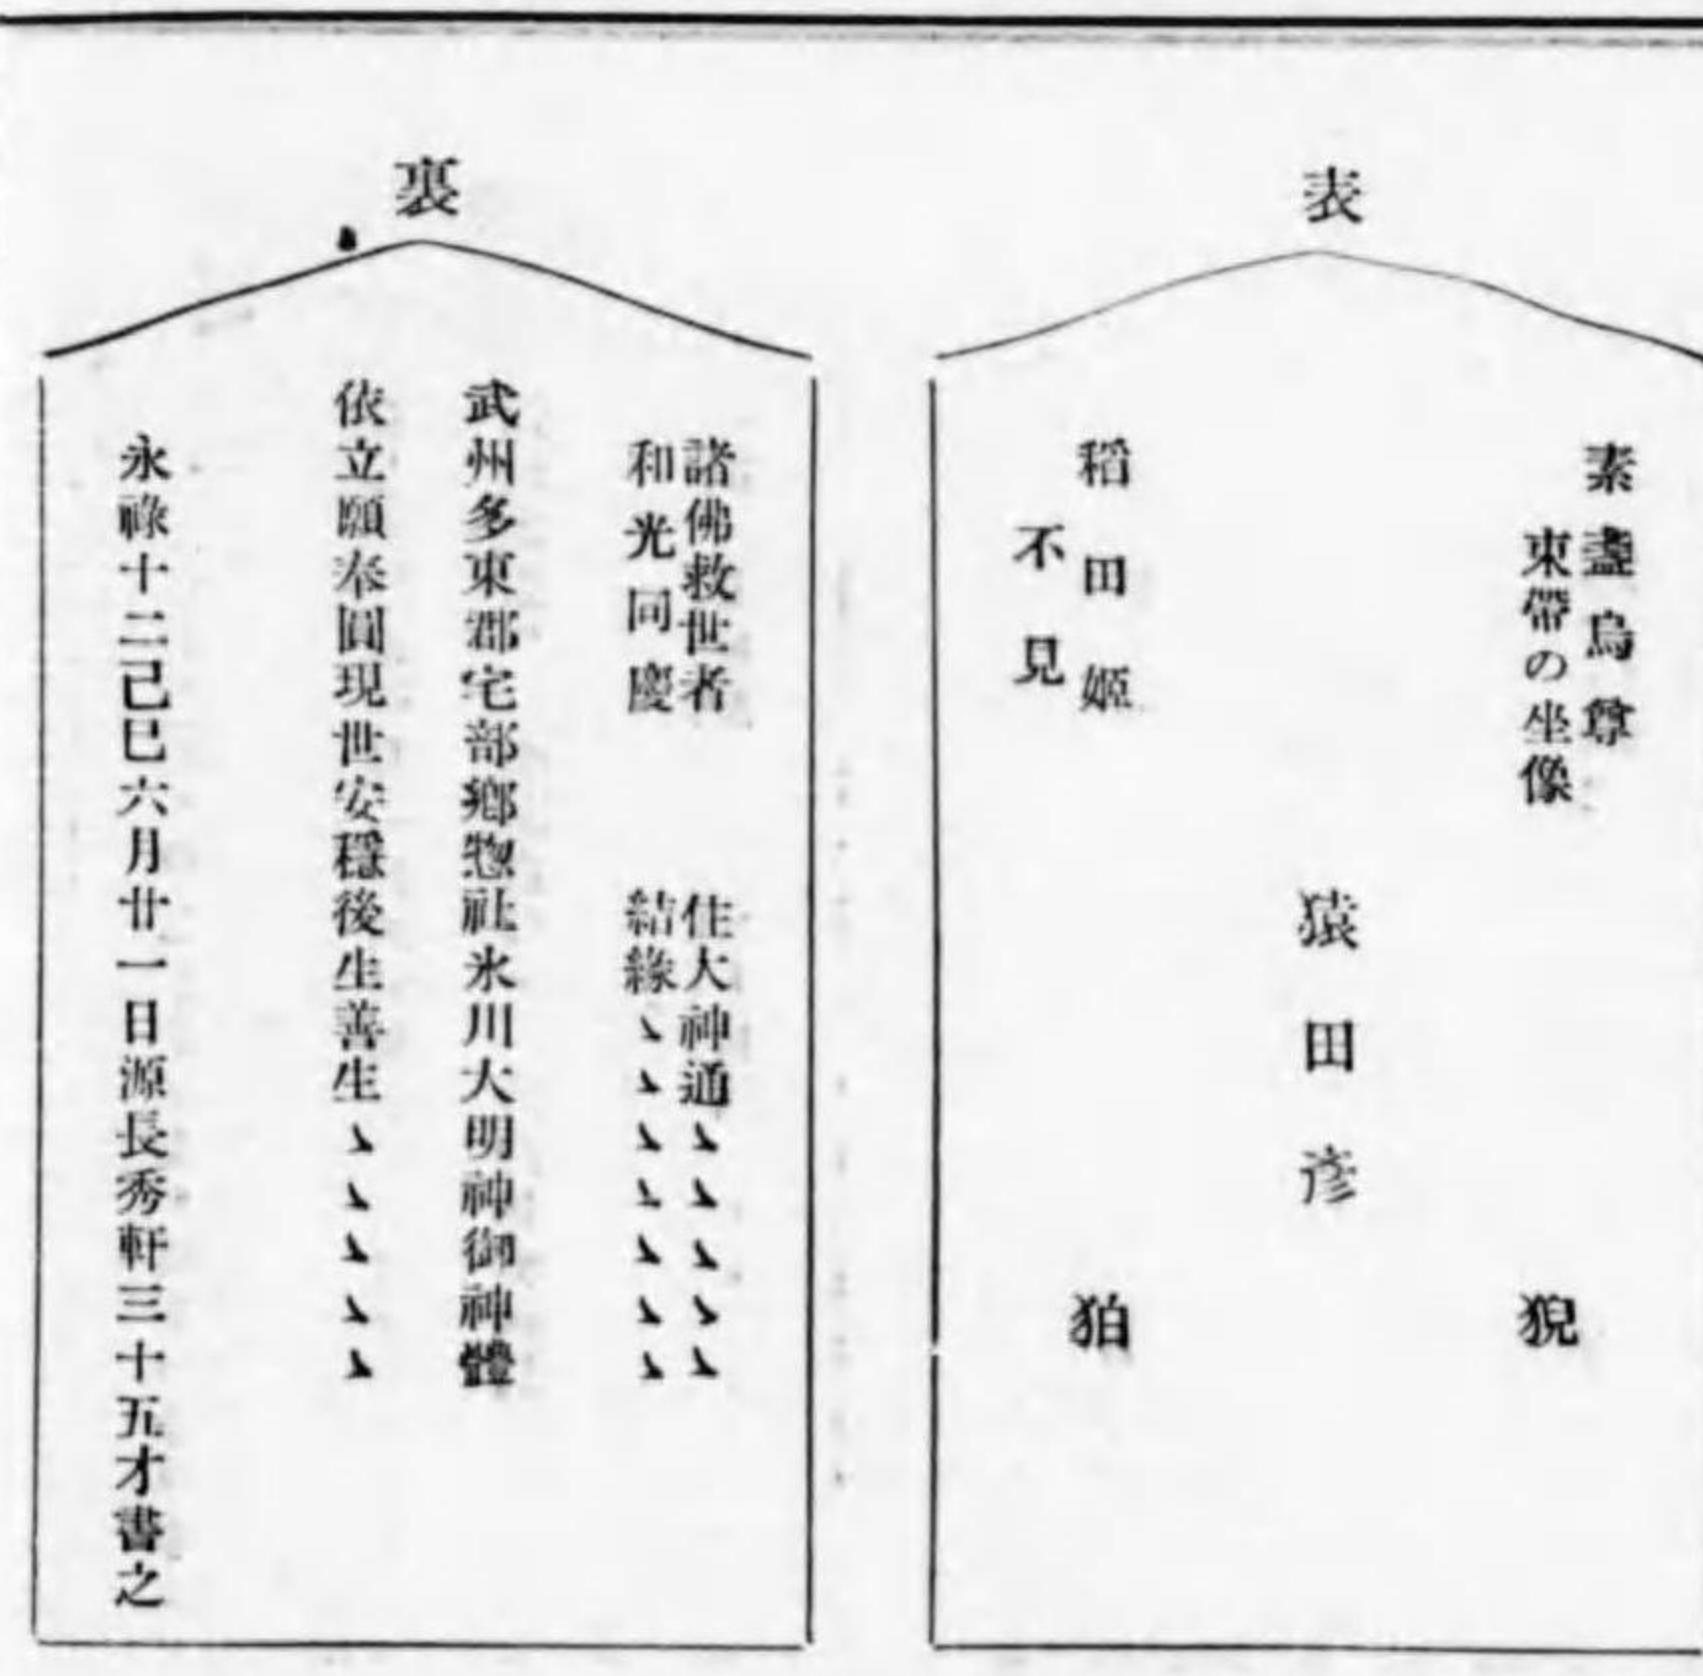 表
素盞烏尊
束帶の坐像
猊
猿田彦
稻田姬
不見
狛
裏
諸佛救世者
住大神通ヽヽヽヽヽ
和光同慶
結緣ヽヽヽヽヽヽヽ
武州多東郡宅部鄉惣社氷川大明神御神體
依立願奉圓現世安穩後生善生ヽヽヽヽヽ
永祿十二己巳六月廿一日源長秀軒三十五才書之